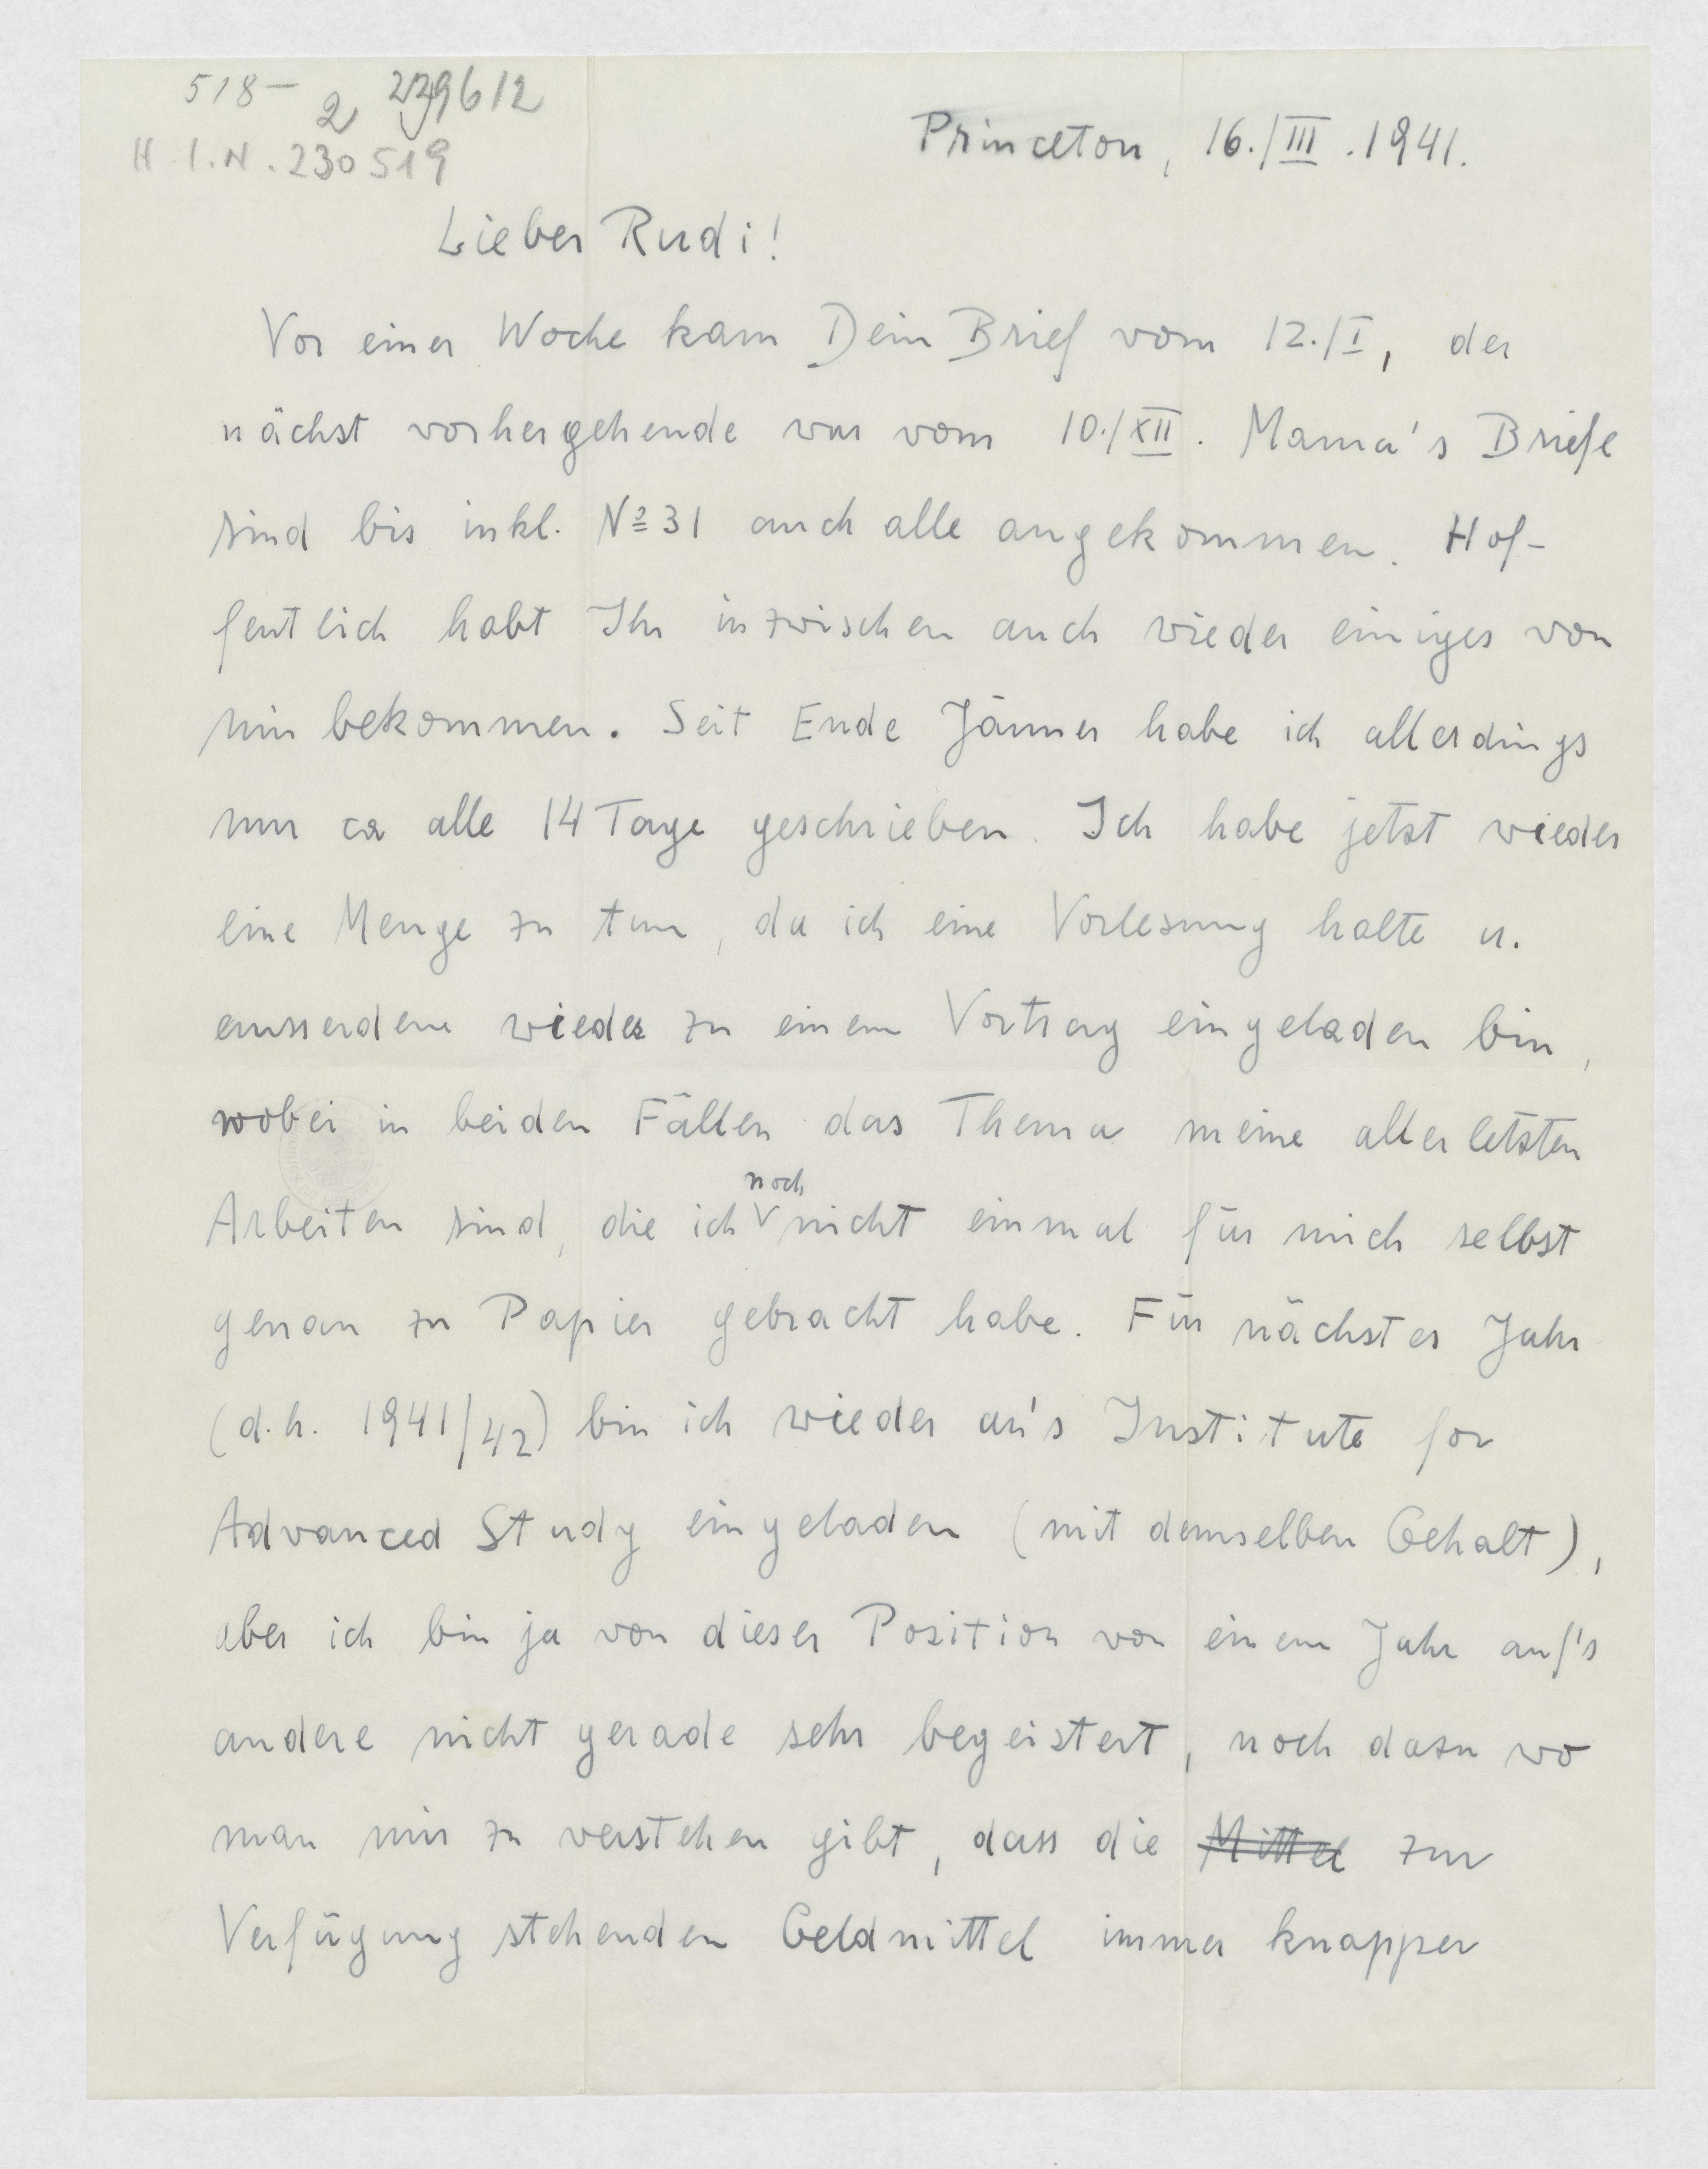 518-2 229612
H.I.N. 230519
Princeton, 16./III.1941.
Lieber Rudi!
Vor einer Woche kam Dein Brief vom 12./I, der
nächst vorhergehende war vom 10./XII. Mama's Briefe
sind bis inkl. No 31 auch alle angekommen. Hof-
fentlich habt Ihr inzwischen auch wieder einiges von
mir bekommen. Seit Ende Jänner habe ich allerdings
nur ca alle 14 Tage geschrieben. Ich habe jetzt wieder
eine Menge zu tun, da ich eine Vorlesung halte u.
ausserdem wieder zu einem Vortrag eingeladen bin,
wobei in beiden Fällen das Thema meine allerletzten
Arbeiten sind, die ich noch nicht einmal für mich selbst
genau zu Papier gebracht habe. Für nächstes Jahr
(d.h. 1941/42) bin ich wieder an's Institute for
Advanced Study eingeladen (mit demselben Gehalt),
aber ich bin ja von dieser Position von einem Jahr auf's
andere nicht gerade sehr begeistert, noch dazu wo
man mir zu verstehen gibt, dass die Mittel zur
Verfügung stehenden Geldmittel immer knapper